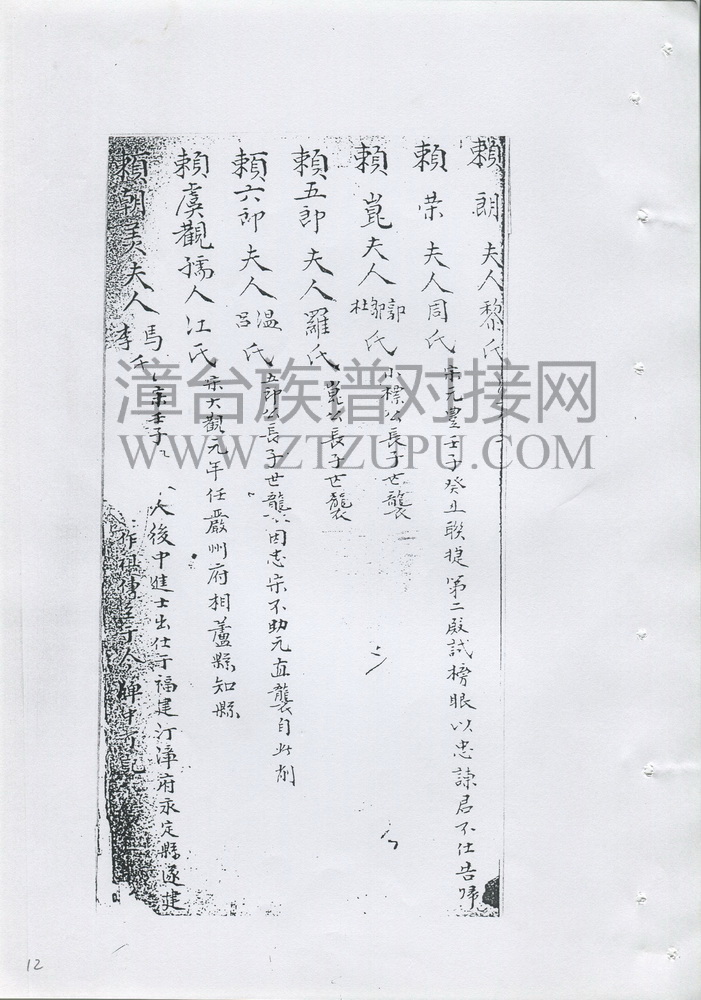 賴朗夫人黎氏
賴荣夫人周氏 宋元豐壬子癸丑聯捷第二殿試榜眼以忠諫君不仕告歸
賴崑夫人郭鄒杜氏 小標公長子世襲
賴五郎夫人羅氏 崑公長子世襲
賴六郎夫人温吕氏 五郎公長子世襲因志宋不助元直襲自此削
賴虞觀孺人江氏 宋大觀元年任嚴州府相蘆縣知縣
賴朝美夫人馬李氏 宗壬子 後中進士出仕于福建汀漳府永定縣遂建
祖傳至于今牌中有記
漳台族谱对接网
WWW.ZTZUPU.COM
12